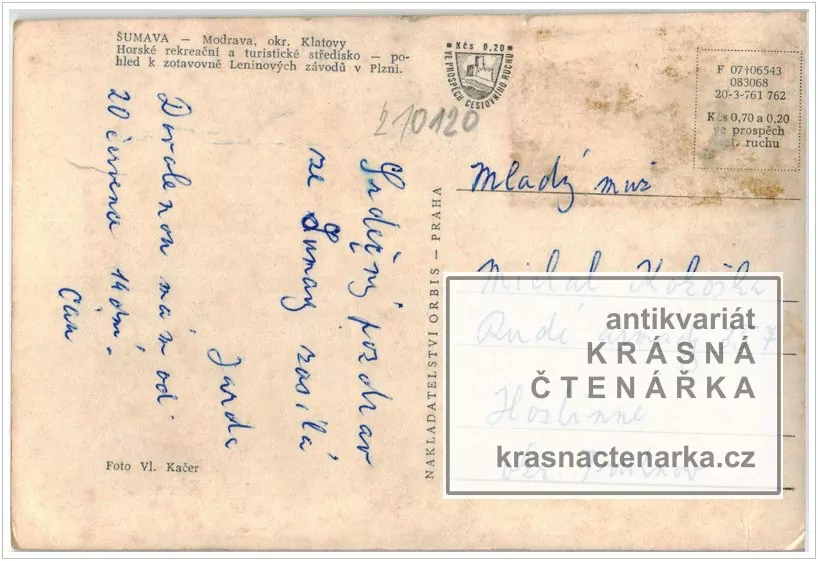 ŠUMAVA — Modrava, okr. Klatovy
Horské rekreační a turistické středisko — po-
hled k zotavovně Leninových závodů v Plzni.
Kčs 0,20
VE PROSPĚCH CESTOVNÍHO RUCHU
F 07+06543
083068
20-3-761 762
Kčs 0,70 a 0,20
ve prospěch
st. ruchu
210120
Srdečný pozdrav
ze Šumavy zasílá
Jarda
Dovolenou mám od
20 června 14 dní.
Čau
NAKLADATELSTVÍ ORBIS — PRAHA
Mladý muž
Michal
Rudé armády
Hostinné
okr.
antikvariát
KRÁSNÁ
ČTENÁŘKA
krasnactenarka.cz
Foto Vl. Kačer